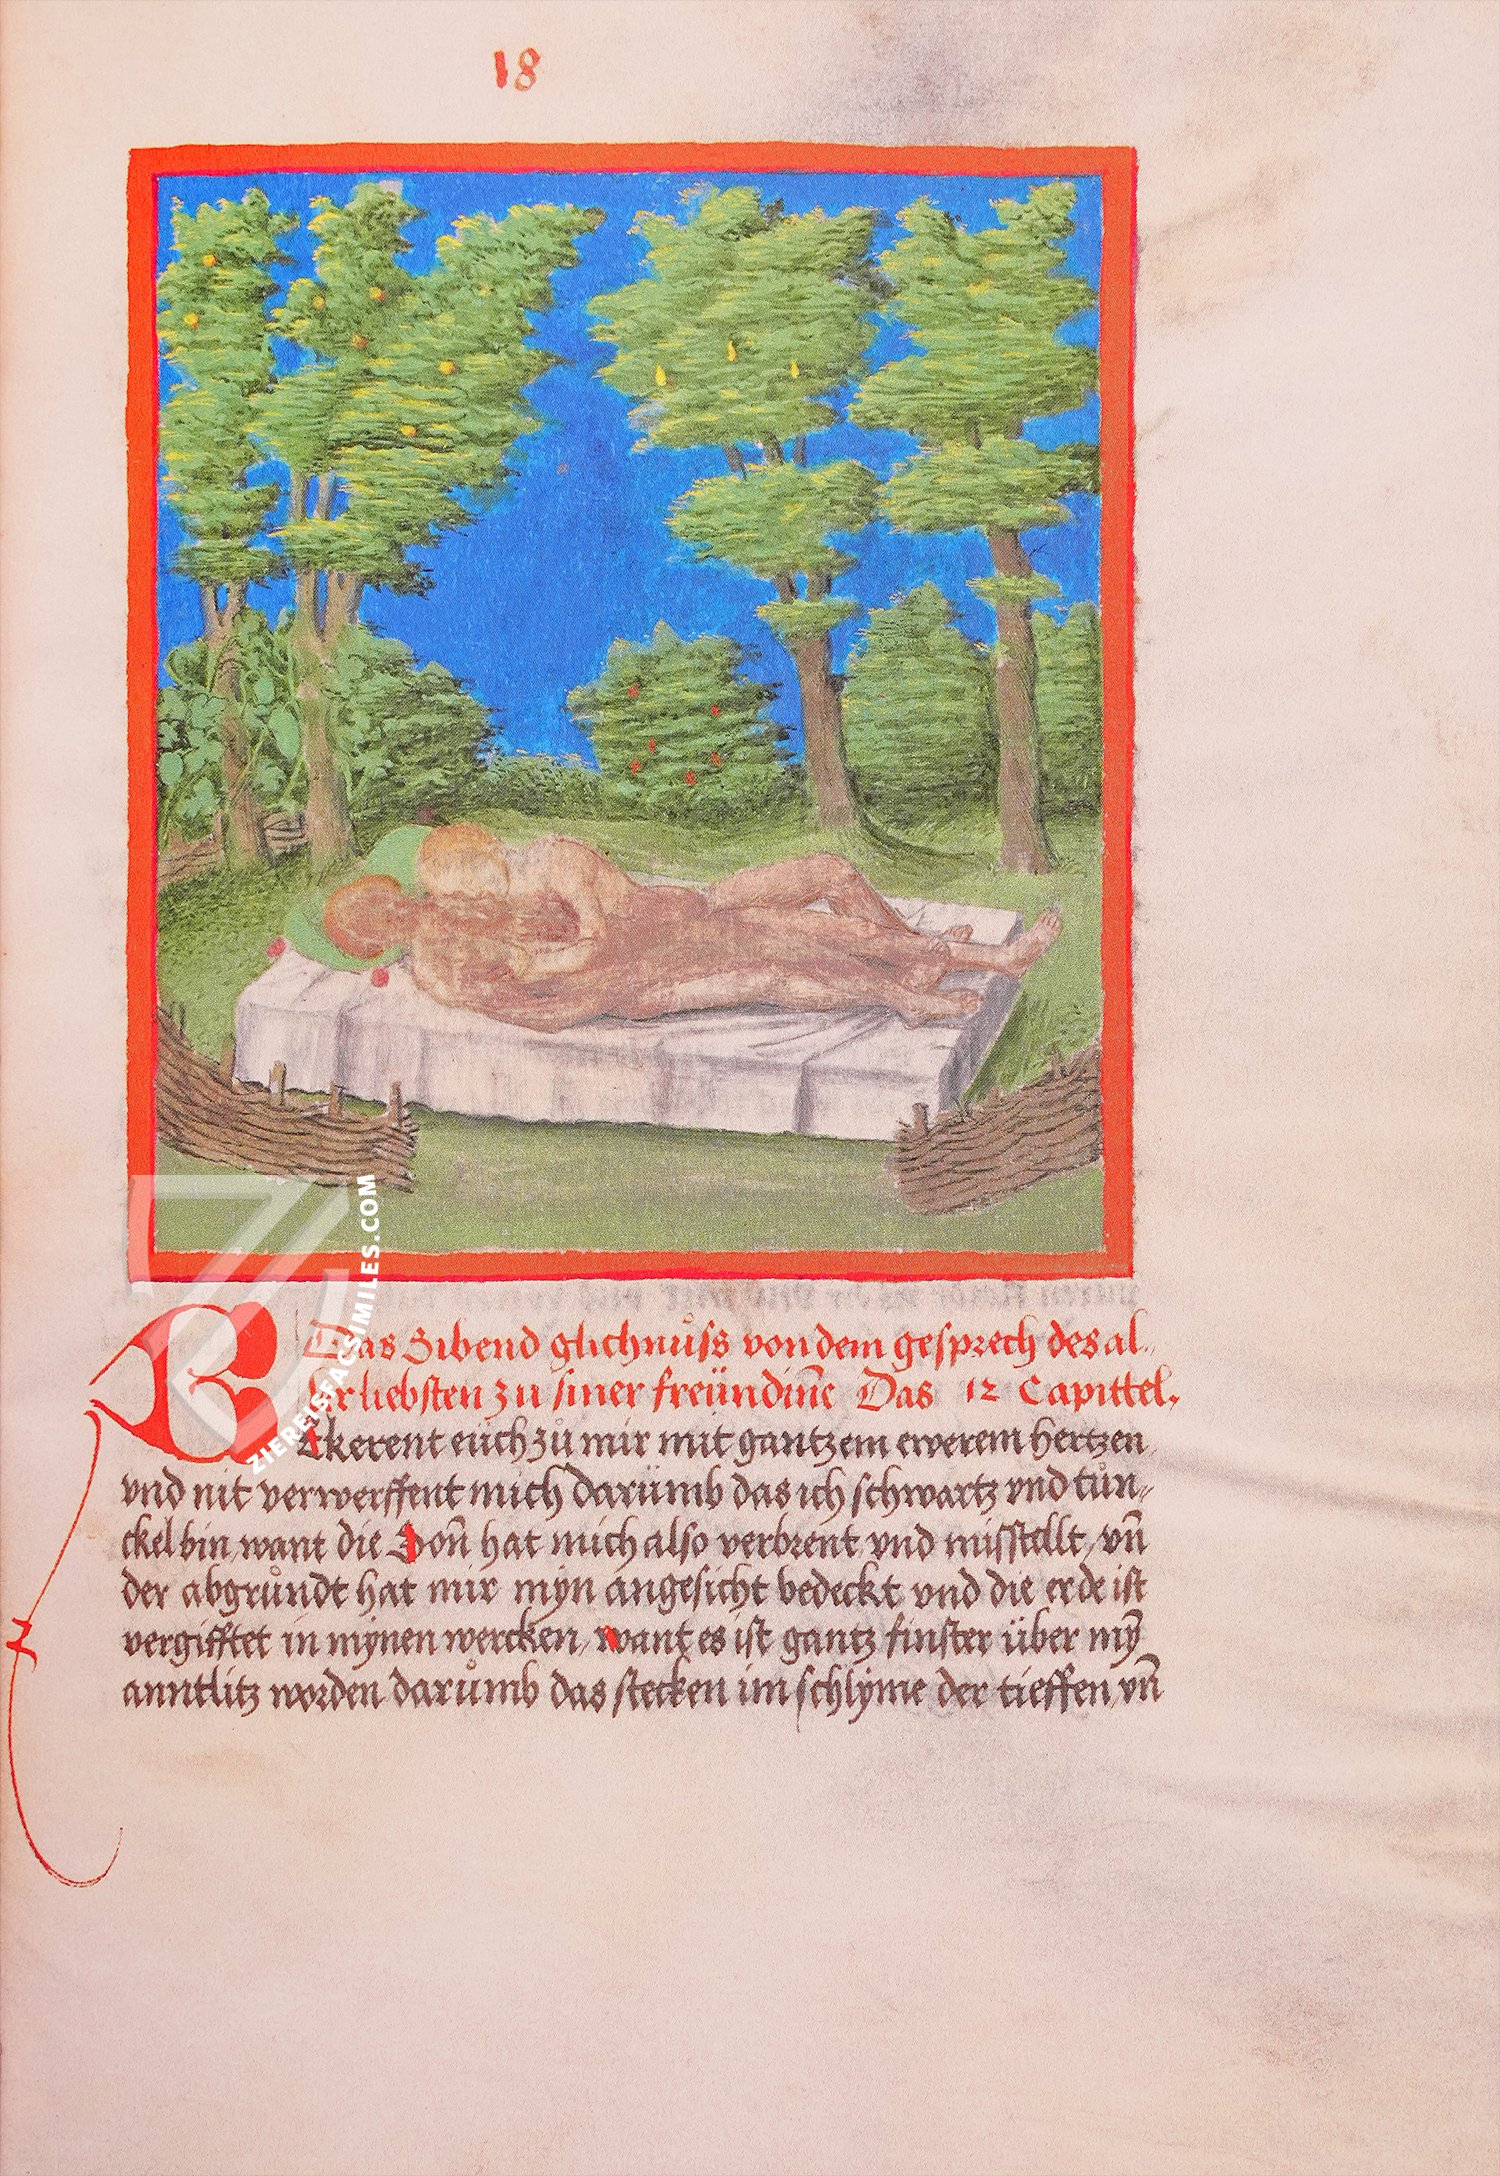 18
Das Sibend glichnuͦss von dem gesprech des al-
ler liebsten zu siner freündiñe Das 12 Capittel.
Bekerent eüch zuͦ mir mit gantzem ewerem hertzen
vnd nit verwerffent mich darümb das ich schwartz vnd tuͦn-
ckel bin, want die Soñ hat mich also verbrent vnd missstellt, vñ
der abgruͦndt hat mir myn angesicht bedeckt vnd die erde ist
vergifftet in mynen wercken, want es ist gantz finster über mȳ
anntlitz worden daruͦmb das stecken im schlyme der tieffen, vñ
ZIEREISFACSIMILES.COM